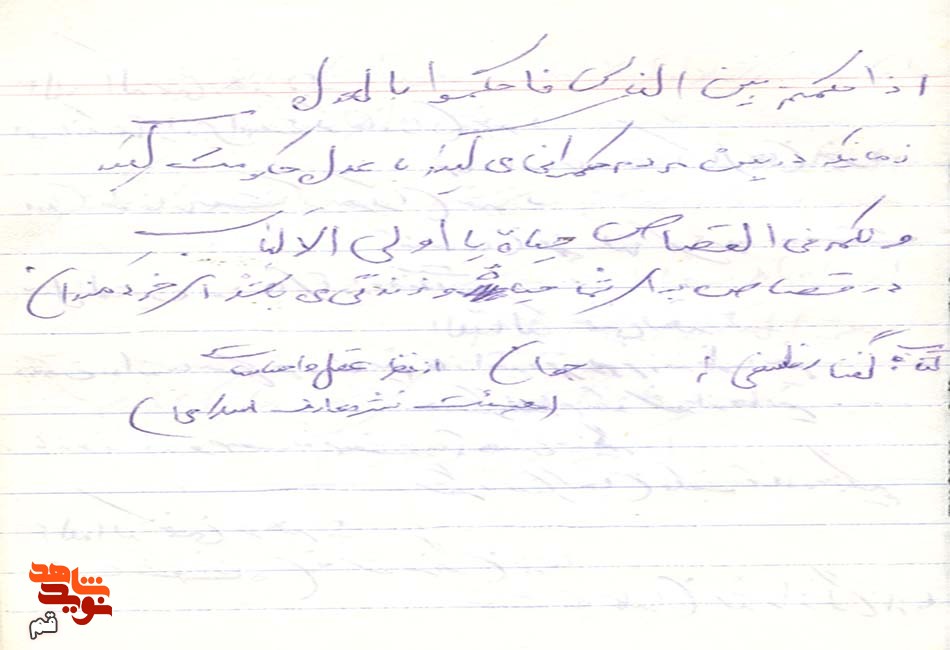 اذا حکمتم بین الناس فاحکموا بالعدل
زمانیکه در بین مردم حکمرانی می کنید با عدل حکومت کنید
و لکم فی القصاص حیاة یا أولی الالباب
در قصاص برای شما حیات و زندگی می باشد ای خردمندان
گفتار فلسفی
از نظر عقل و احساس
(هیئت نشر معارف اسلامی)
نوید شاهد
قم